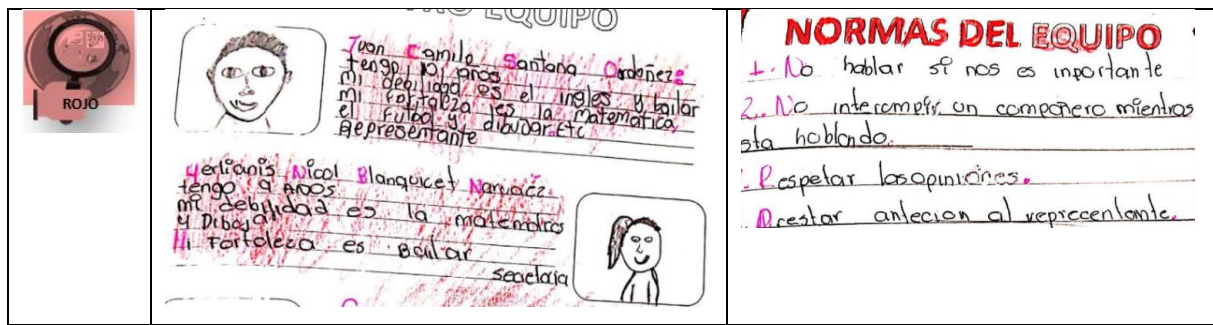 ROJO
EQUIPO
Juan Camilo Santana Ordoñez:
tengo 10 años
mi debilidad es el ingles y bailar
mi fortaleza es la matematica,
el futbol y dibujar.Etc
Representante
Yerlianis Nicol Blanquicet Narvaez.
tengo 9 AÑOS
mi debilidad es la matematica
y Dibujar
Mi Fortaleza es Bailar
NORMAS DEL EQUIPO
1. No hablar si nos es inportante
2. No interrumpir un compañero mientras
sta hablando.
. Respetar las opiniones.
. Prestar antecion al reprecentante.